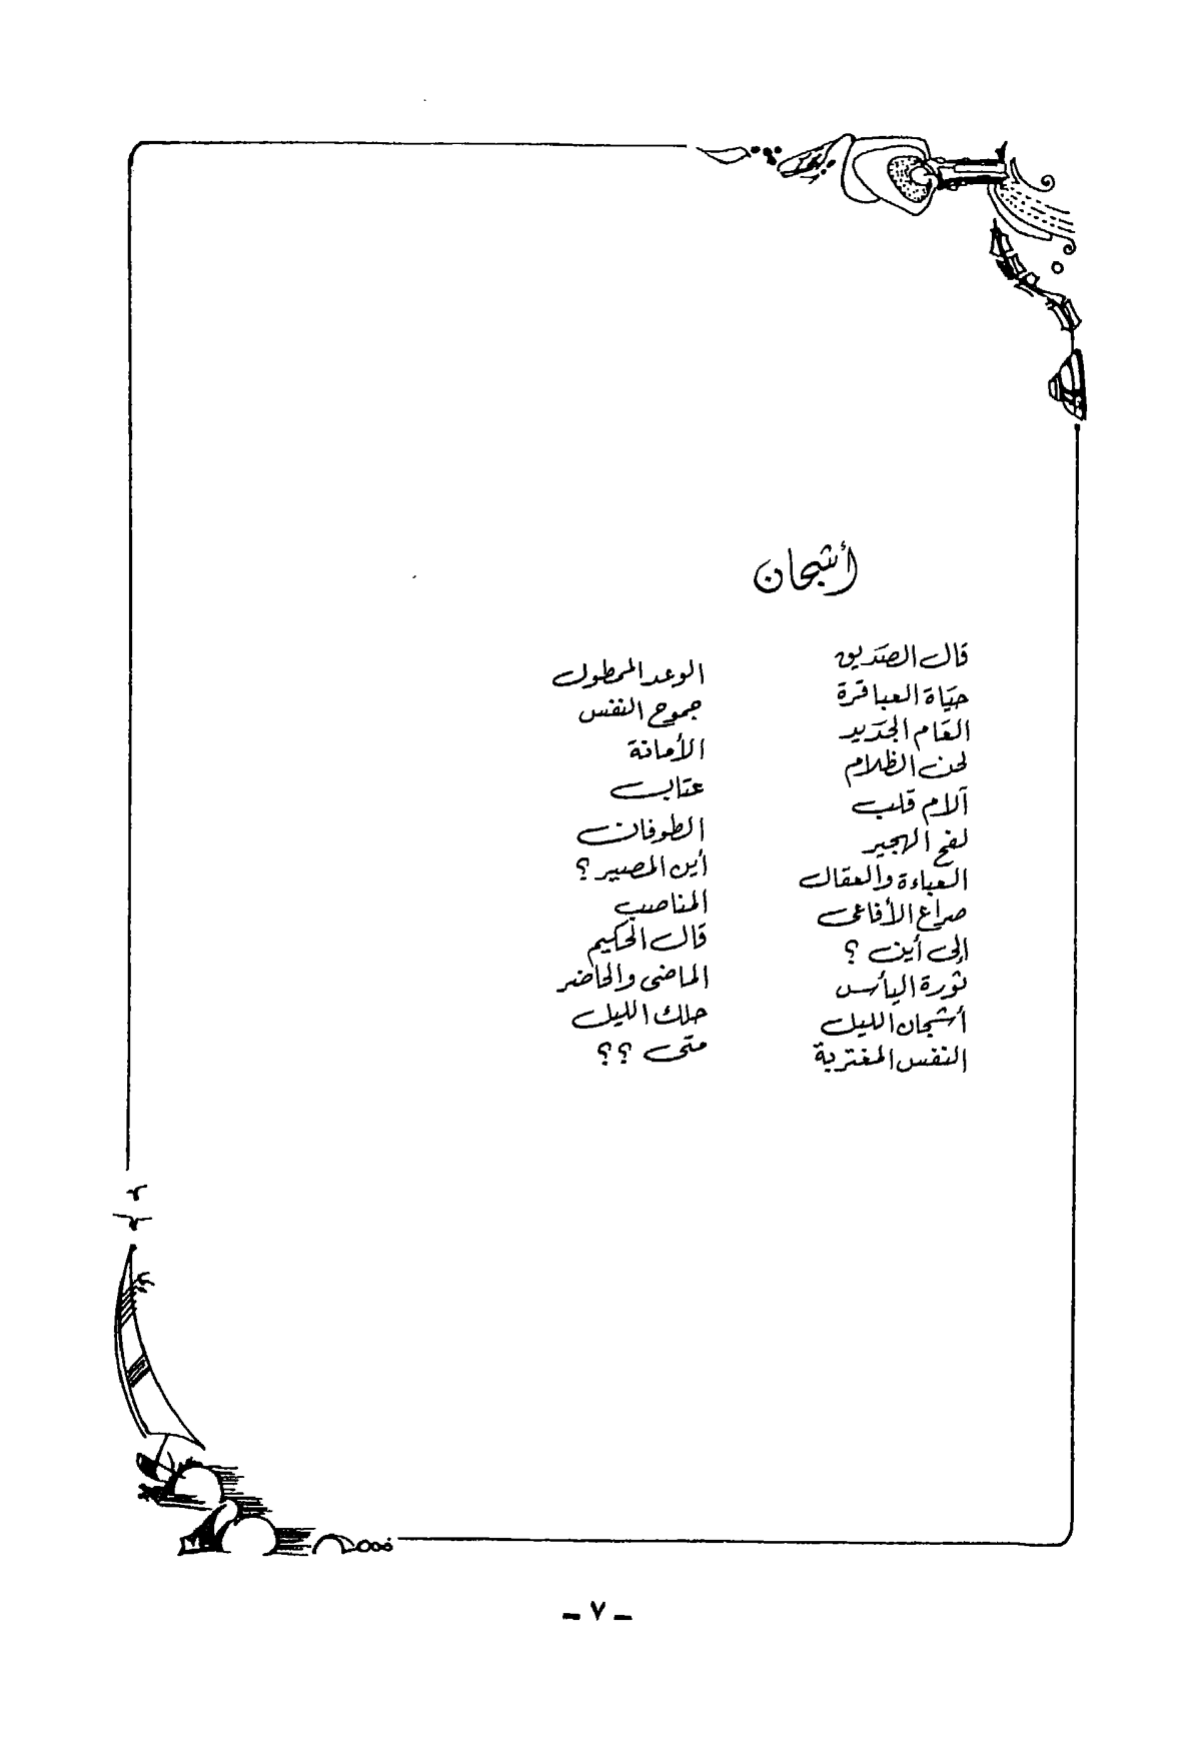 أشجان
قال الصديق
حياة العباقرة
العام الجديد
لحن الظلام
آلام قلب
لفح الهجير
العباءة والعقال
صراع الأفاعى
إلى أين ؟
ثورة اليأس
أشجان الليل
النفس المغتربة
الوعد الممطول
جموح النفس
الأمانة
عتاب
الطوفان
أين المصير ؟
المناصب
قال الحكيم
الماضى والحاضر
حلك الليل
متى ؟ ؟
ـ ٧ ـ